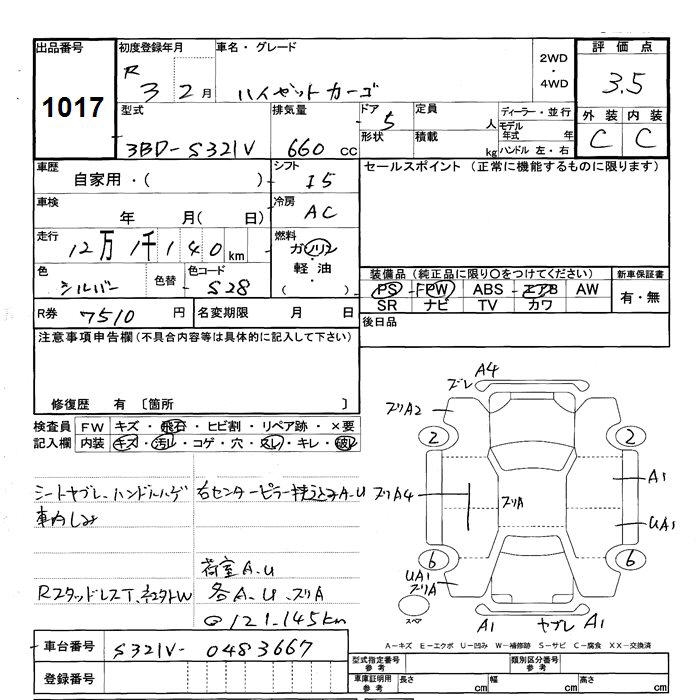 出品番号 初度登録年月 車名・グレード 2WD・4WD 評価点
1017 R 3 2月 ハイゼットカーゴ 3.5
型式 排気量 ドア 定員 ディーラー・並行 外装 内装
3BD-S321V 660 CC 5 人 モデル年式 年 C C
形状 積載 kg ハンドル 左・右
車歴 自家用・( ) シフト I5 セールスポイント (正常に機能するものに限ります)
車検 年 月( 日) 冷房 AC
走行 12万1千140km 燃料 ガソリン・軽油・( )
色 シルバー 色替 色コード S28
装備品 (純正品に限り○をつけてください) 新車保証書
PS PW ABS エアB AW 有・無
SR ナビ TV カワ
R券 7510円 名変期限 月 日 後日品
注意事項申告欄(不具合内容等は具体的に記入して下さい)
修復歴 有 〔箇所 〕
検査員 FW キズ・飛石・ヒビ割・リペア跡・×要
記入欄 内装 キズ・汚れ・コゲ・穴・スレ・キレ・破レ
シートヤブレ、ハンドルハゲ 右センターピラー 込みA.U
車内しみ
荷室A.U
RスタッドレスT、 W 各A、U、ズリA
@121.145km
A4
ズレ
ズリA2
2 2
ズリA4 ズリA A1
UA1
6 6
UA1
ズリA
スペア
A1 ヤブレ A1
A-キズ E-エクボ U-凹み W-補修跡 S-サビ C-腐食 XX-交換済
車台番号 S321V-0483667
登録番号
型式指定番号 参考 類別区分番号 参考
車庫証明用 参考 長さ cm 幅 cm 高さ cm